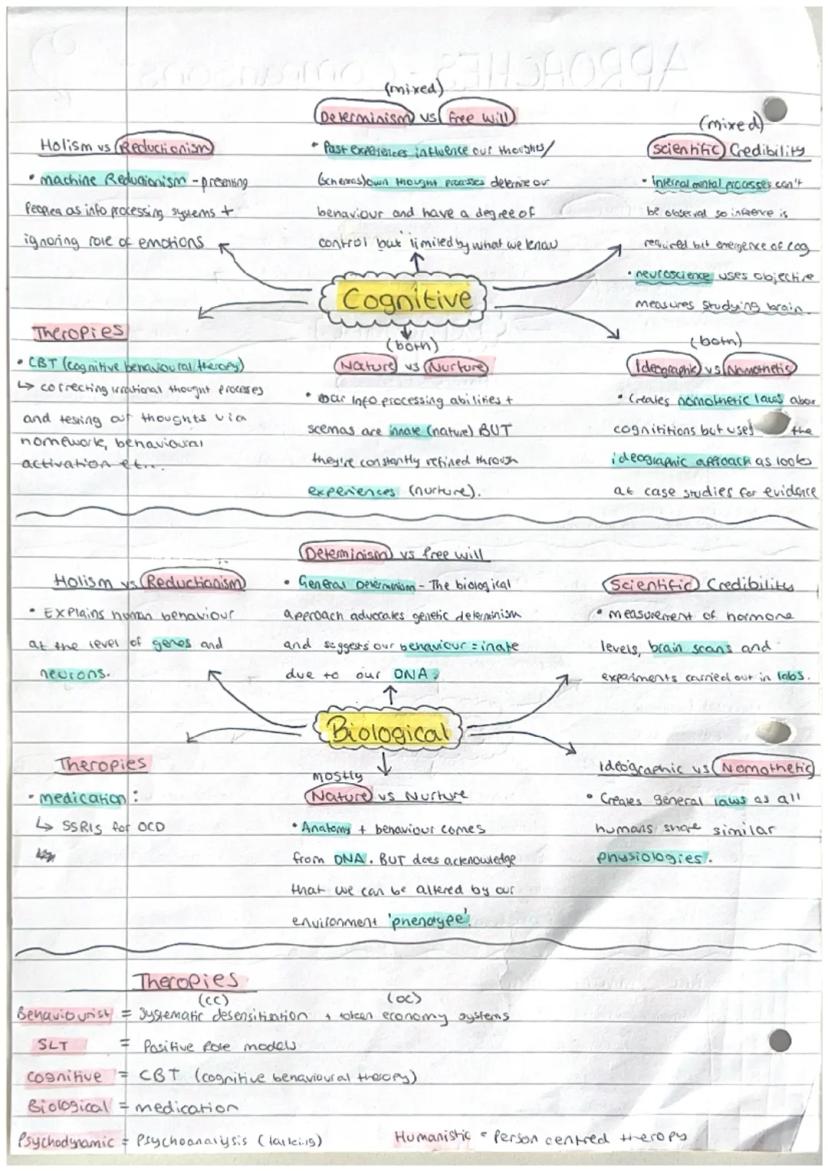 APROACHES - Comparisons
(mixed)
Determinism vs free will
• Past experiences influence our thoughts/
(schemas) own thought processes determine our
behaviour and have a degree of
control but limited by what we know
Holism vs Reductionism
• machine Reductionism - presenting
people as info processing systems +
ignoring role of emotions
(mixed)
scientific Credibility
• Internal mental processes can't
be observed so inference is
required but emergence of cog
• neuroscience uses objective
measures studying brain.
Cognitive
Therapies
• CBT (cognitive behavioural therapy)
↳ correcting irrational thought processes
and testing our thoughts via
homework, behavioural
activation etc...
(both)
Nature vs Nurture
• our info processing abilities +
scemas are innate (nature) BUT
they're constantly refined through
experiences (nurture).
(both)
Ideographic vs Nomothetic
• Creates nomothetic laws abou
cognititions but uses the
ideographic approach as looks
at case studies for evidence
Holism vs Reductionism
• Explains human behaviour
at the level of genes and
neurons.
Determinism vs free will
• General Determinism - The biological
approach advocates genetic determinism
and suggests our behaviour = inate
due to our DNA.
Scientific Credibility
• measurement of hormone
levels, brain scans and
experiments carried out in labs.
Biological
Therapies
• medication:
↳ SSRIS for OCD
mostly
Nature vs Nurture
• Anatomy + behaviour comes
from DNA. BUT does acknowledge
that we can be altered by our
environment 'phenotype'.
Ideographic vs Nomothetic
• Creates general laws as all
humans share similar
physiologies.
Therapies
(CC) (OC)
Behaviourist = Systematic desensitization + token economy systems
SLT = Positive Role models
cognitive = CBT (cognitive behavioural therapy)
Biological = medication
Psychodynamic = Psychoanalysis Humanistic = Person centred therapy